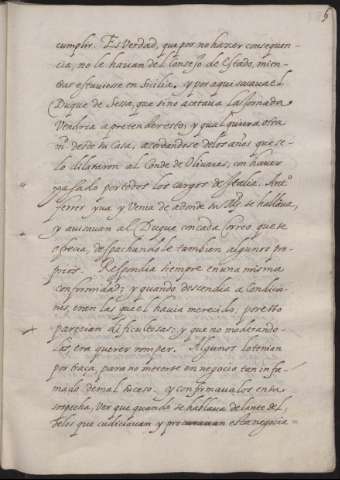 6
cumplir. Es Verdad, que por no hazer consequen-
cia, no le hauian del Consejo de Estado, mien-
tras estuuiesse en Sicilia, y ver aqui sacaua el
Duque de Sessa, que si no acetaua la Jornada
Vendria a pretender esto, y qualquiera otra
desde su Casa, acordandose de los años que se
lo dilataron al Conde de Oliuares, con hauer
passado por todos los cargos de Italia. Anto
ferrer yua y Venia de adonde su Mgd se hallaua,
y auisauan al Duque con cada correo que se
ofrecia, despachandole tambien algunos pro-
pios. Respondia siempre en una misma
conformidad; y quando descendia a Condicio-
nes, eran las que el hauia merecido, por esto
parecian dificultosas: y que no moderando-
las, era querer romper. Algunos lo tenian
por traça, para no meterse en negocio tan infa-
mado de mal suceso: y confirmaualos en la
sospecha, Ver que quando se hablaua delante del,
de los que cudiciauan y procurauan esta negocia-